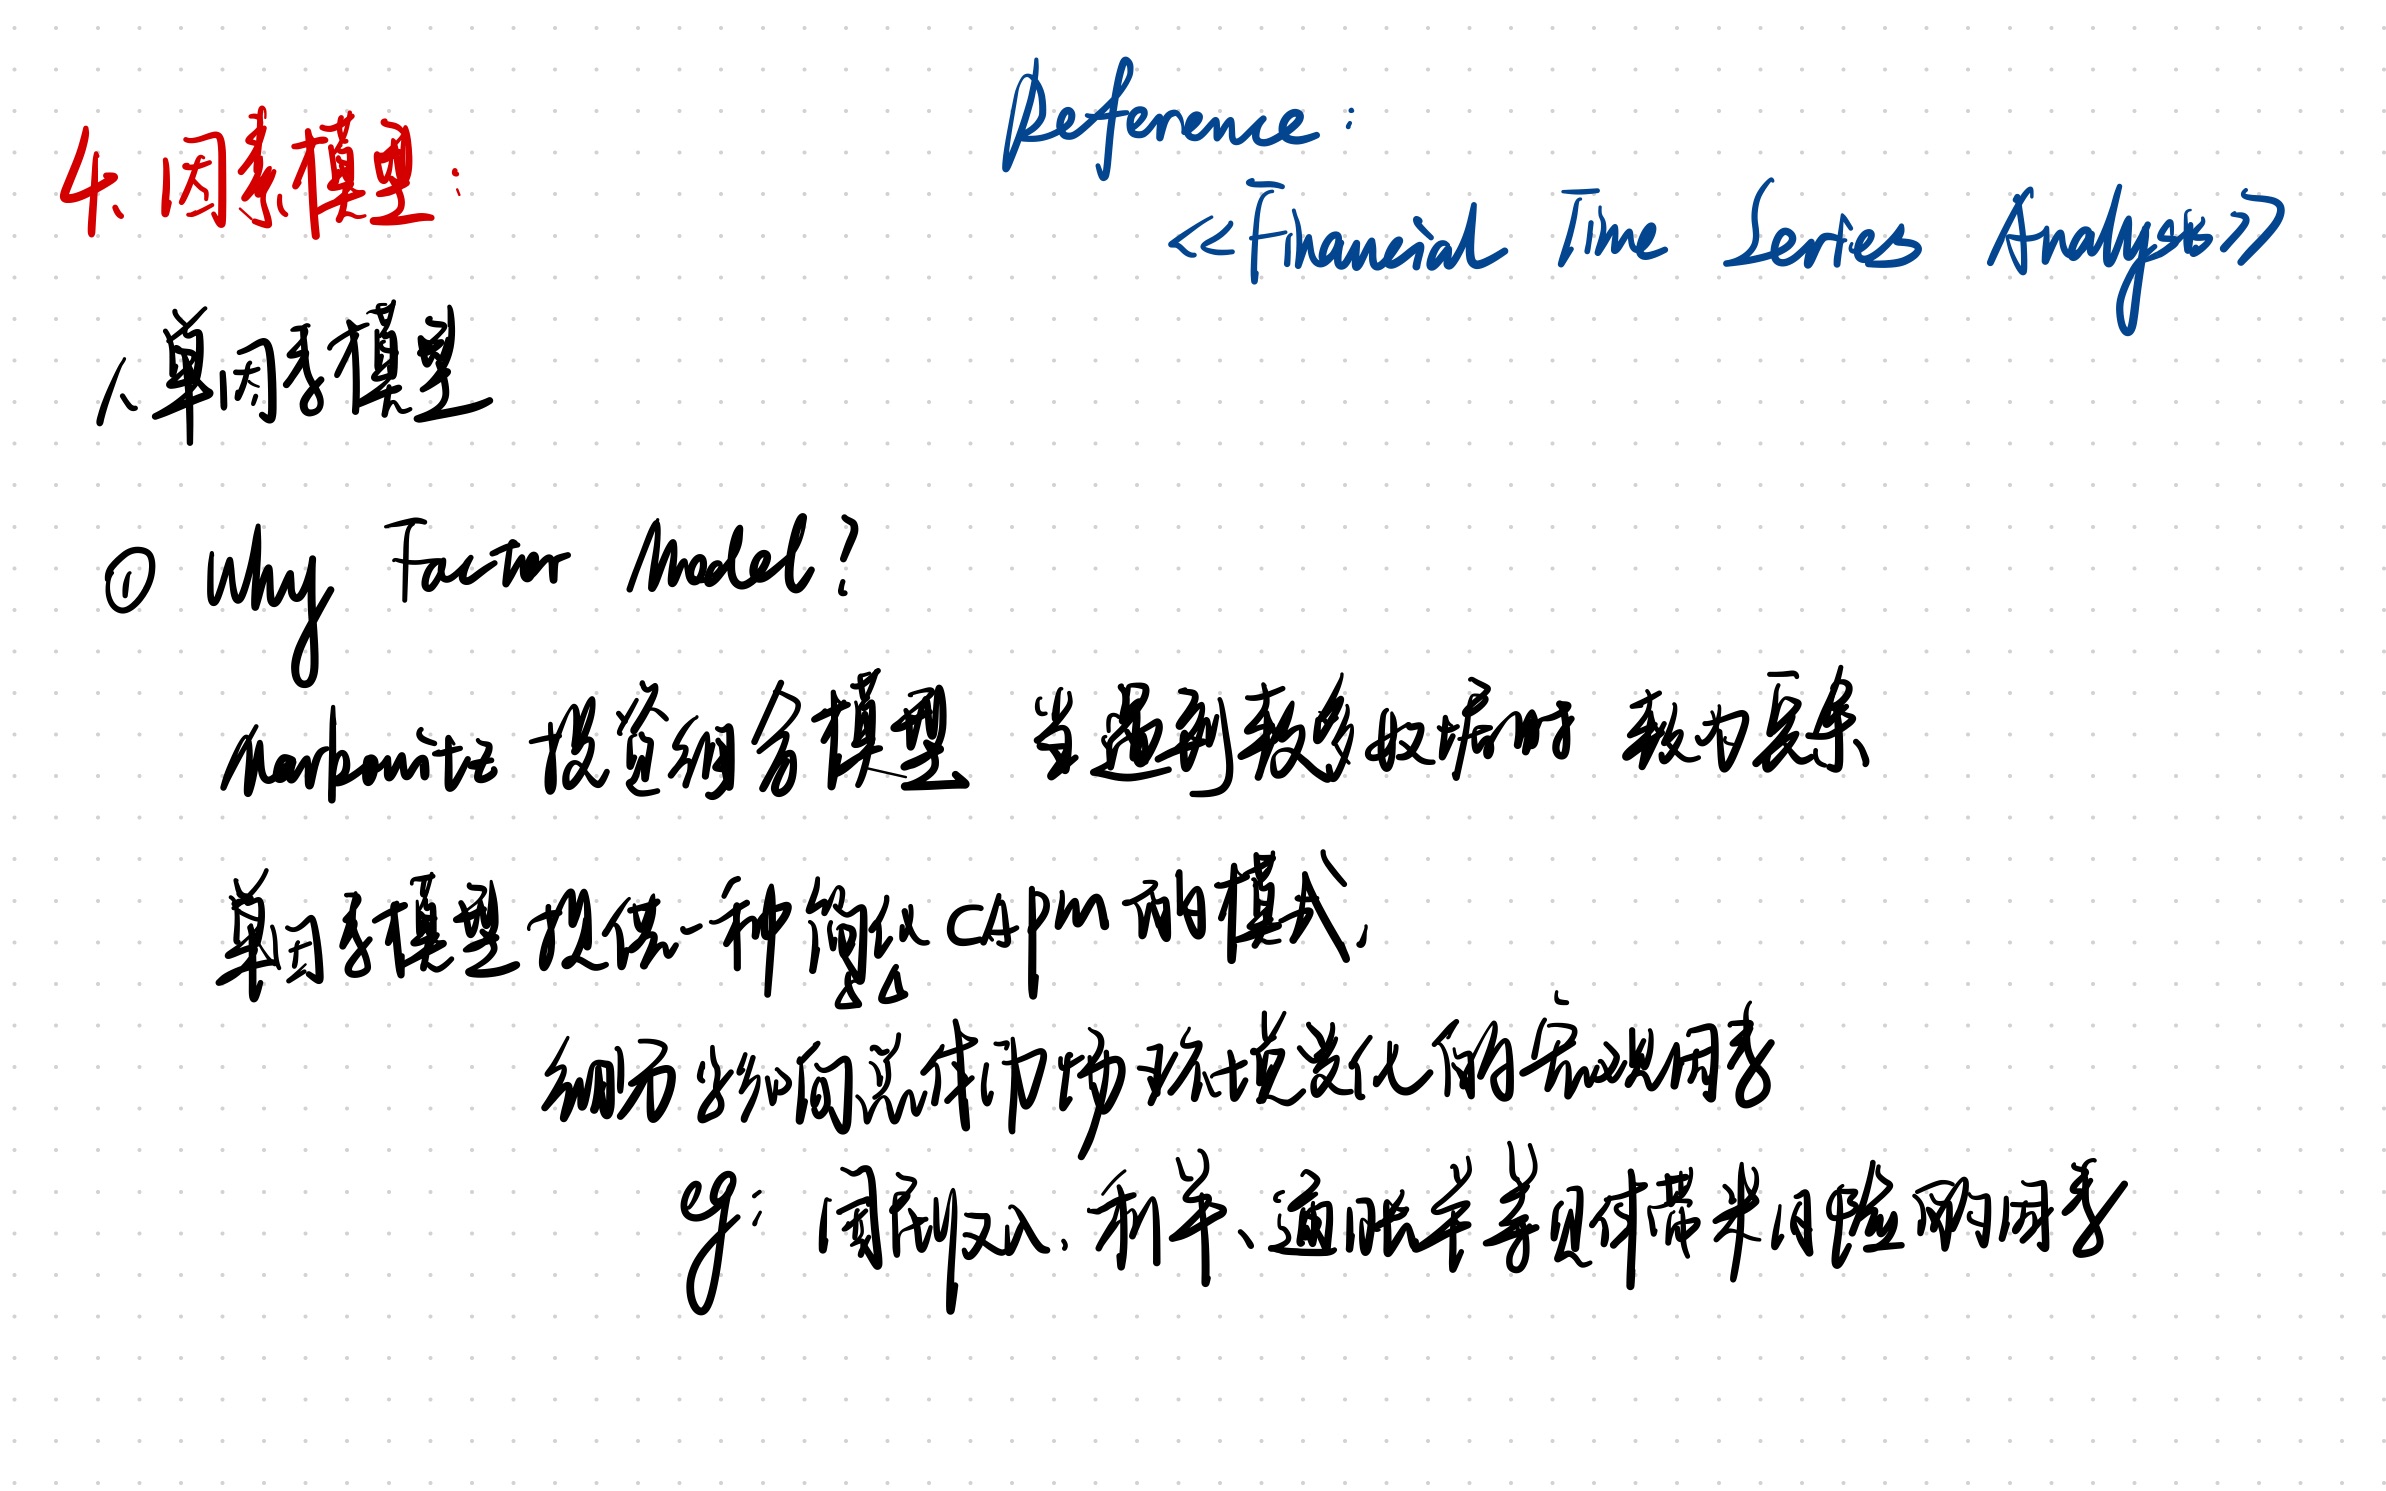 4、因素模型：
Reference：
<<Financial Time Series Analysis>>
1、单因素模型
① Why Factor Model?
Markowitz 投资组合模型 当遇到较多 时 较为复杂
单因素模型提供一种 CAPM的模式，
细分 总体市场环境变化的宏观因素
eg： 国民收入、利率、通胀率等 对 的因素